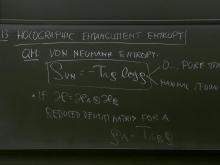 HOLOGRAPHIC ENTANGLEMENT ENTROPY
QM: VON NEUMANN ENTROPY:
S_VN = -Tr ρ log ρ
0... PURE
MAXIMAL
• IF ℋ = ℋ_A ⊗ ℋ_B
REDUCED DENSITY MATRIX FOR A
ρ_A = Tr_B ρ